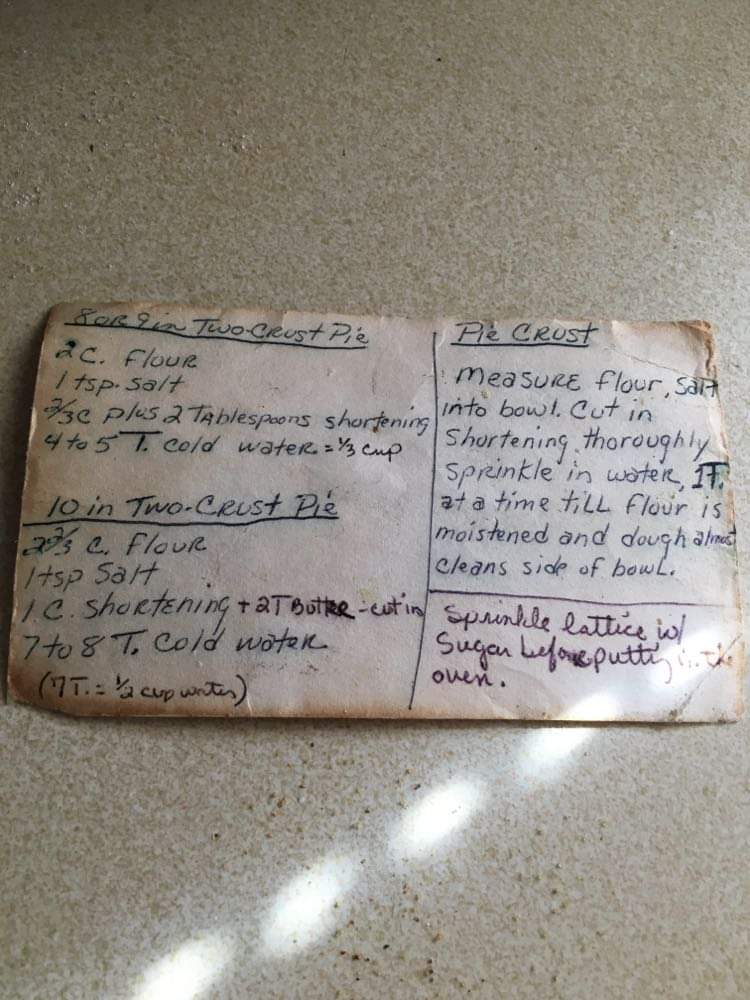 8 or 9 in Two-Crust Pie
2 C. Flour
1 tsp. Salt
2/3 C plus 2 Tablespoons shortening
4 to 5 T. cold water = 1/3 cup
10 in Two-Crust Pie
2 2/3 C. Flour
1 tsp Salt
1 C. Shortening + 2T Butter - cut in
7 to 8 T. Cold water
(7 T. = 1/2 cup water)
Pie Crust
Measure flour, Salt
into bowl. Cut in
Shortening thoroughly
Sprinkle in water, 1T.
at a time till flour is
moistened and dough almost
cleans side of bowl.
Sprinkle lattice w/
Sugar before putting in the
oven.